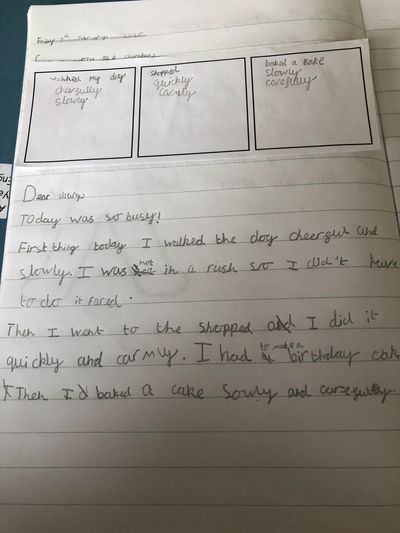 Friday 7th February 2025
walked my dog
cheerfully
slowly
shopped
quickly
carmly
baked a kake
slowly
carefully
Dear diary
Today was so busy!
First thing today I walked the dog cheerful and
slowly. I was not in a rush so I did't have
to do it
Then I went to the shopped and I did it
quickly and carmly. I had to make a birthday cake
Then I baked a cake sowly and carefully.